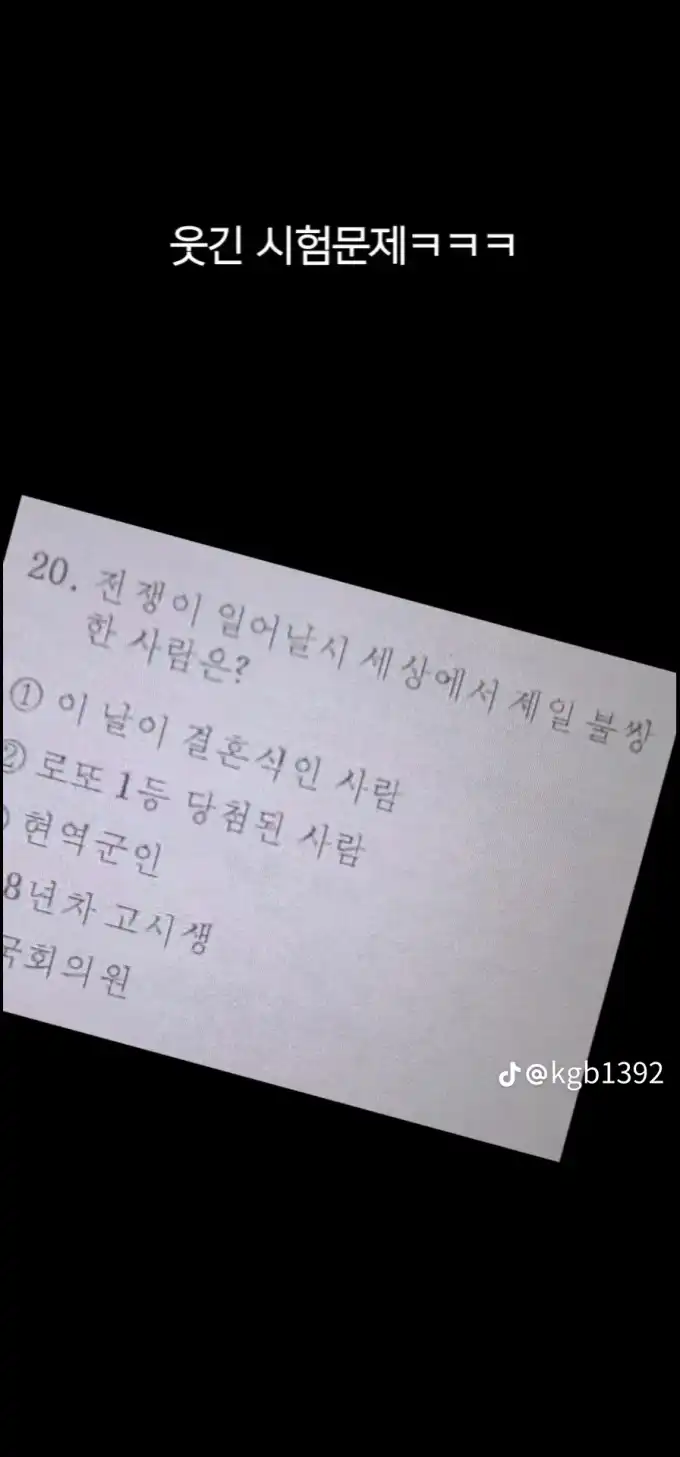 웃긴 시험문제ㅋㅋㅋ
20. 전쟁이 일어날시 세상에서 제일 불쌍
한 사람은?
① 이 날이 결혼식인 사람
② 로또 1등 당첨된 사람
현역군인
8년차 고시생
국회의원
@kgb1392